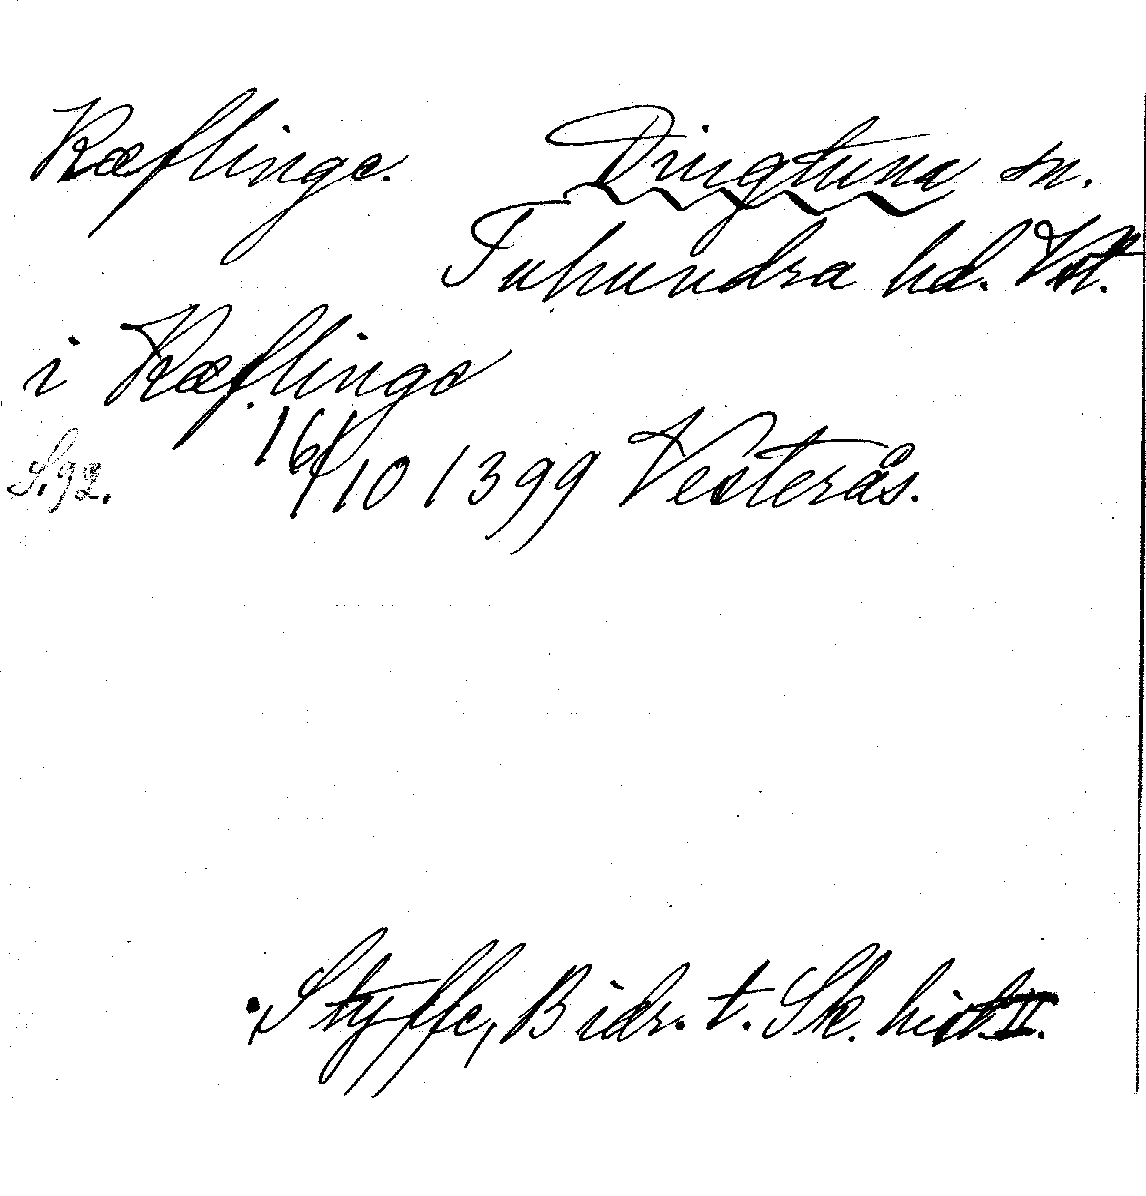 Ræflinge. Dingtuna sn.
Tuhundra hd. Vstl.
i Ræflinge
S. 92. 16/10 1399 Vesterås.
Styffe, Bidr. t. Sk. hist. II.